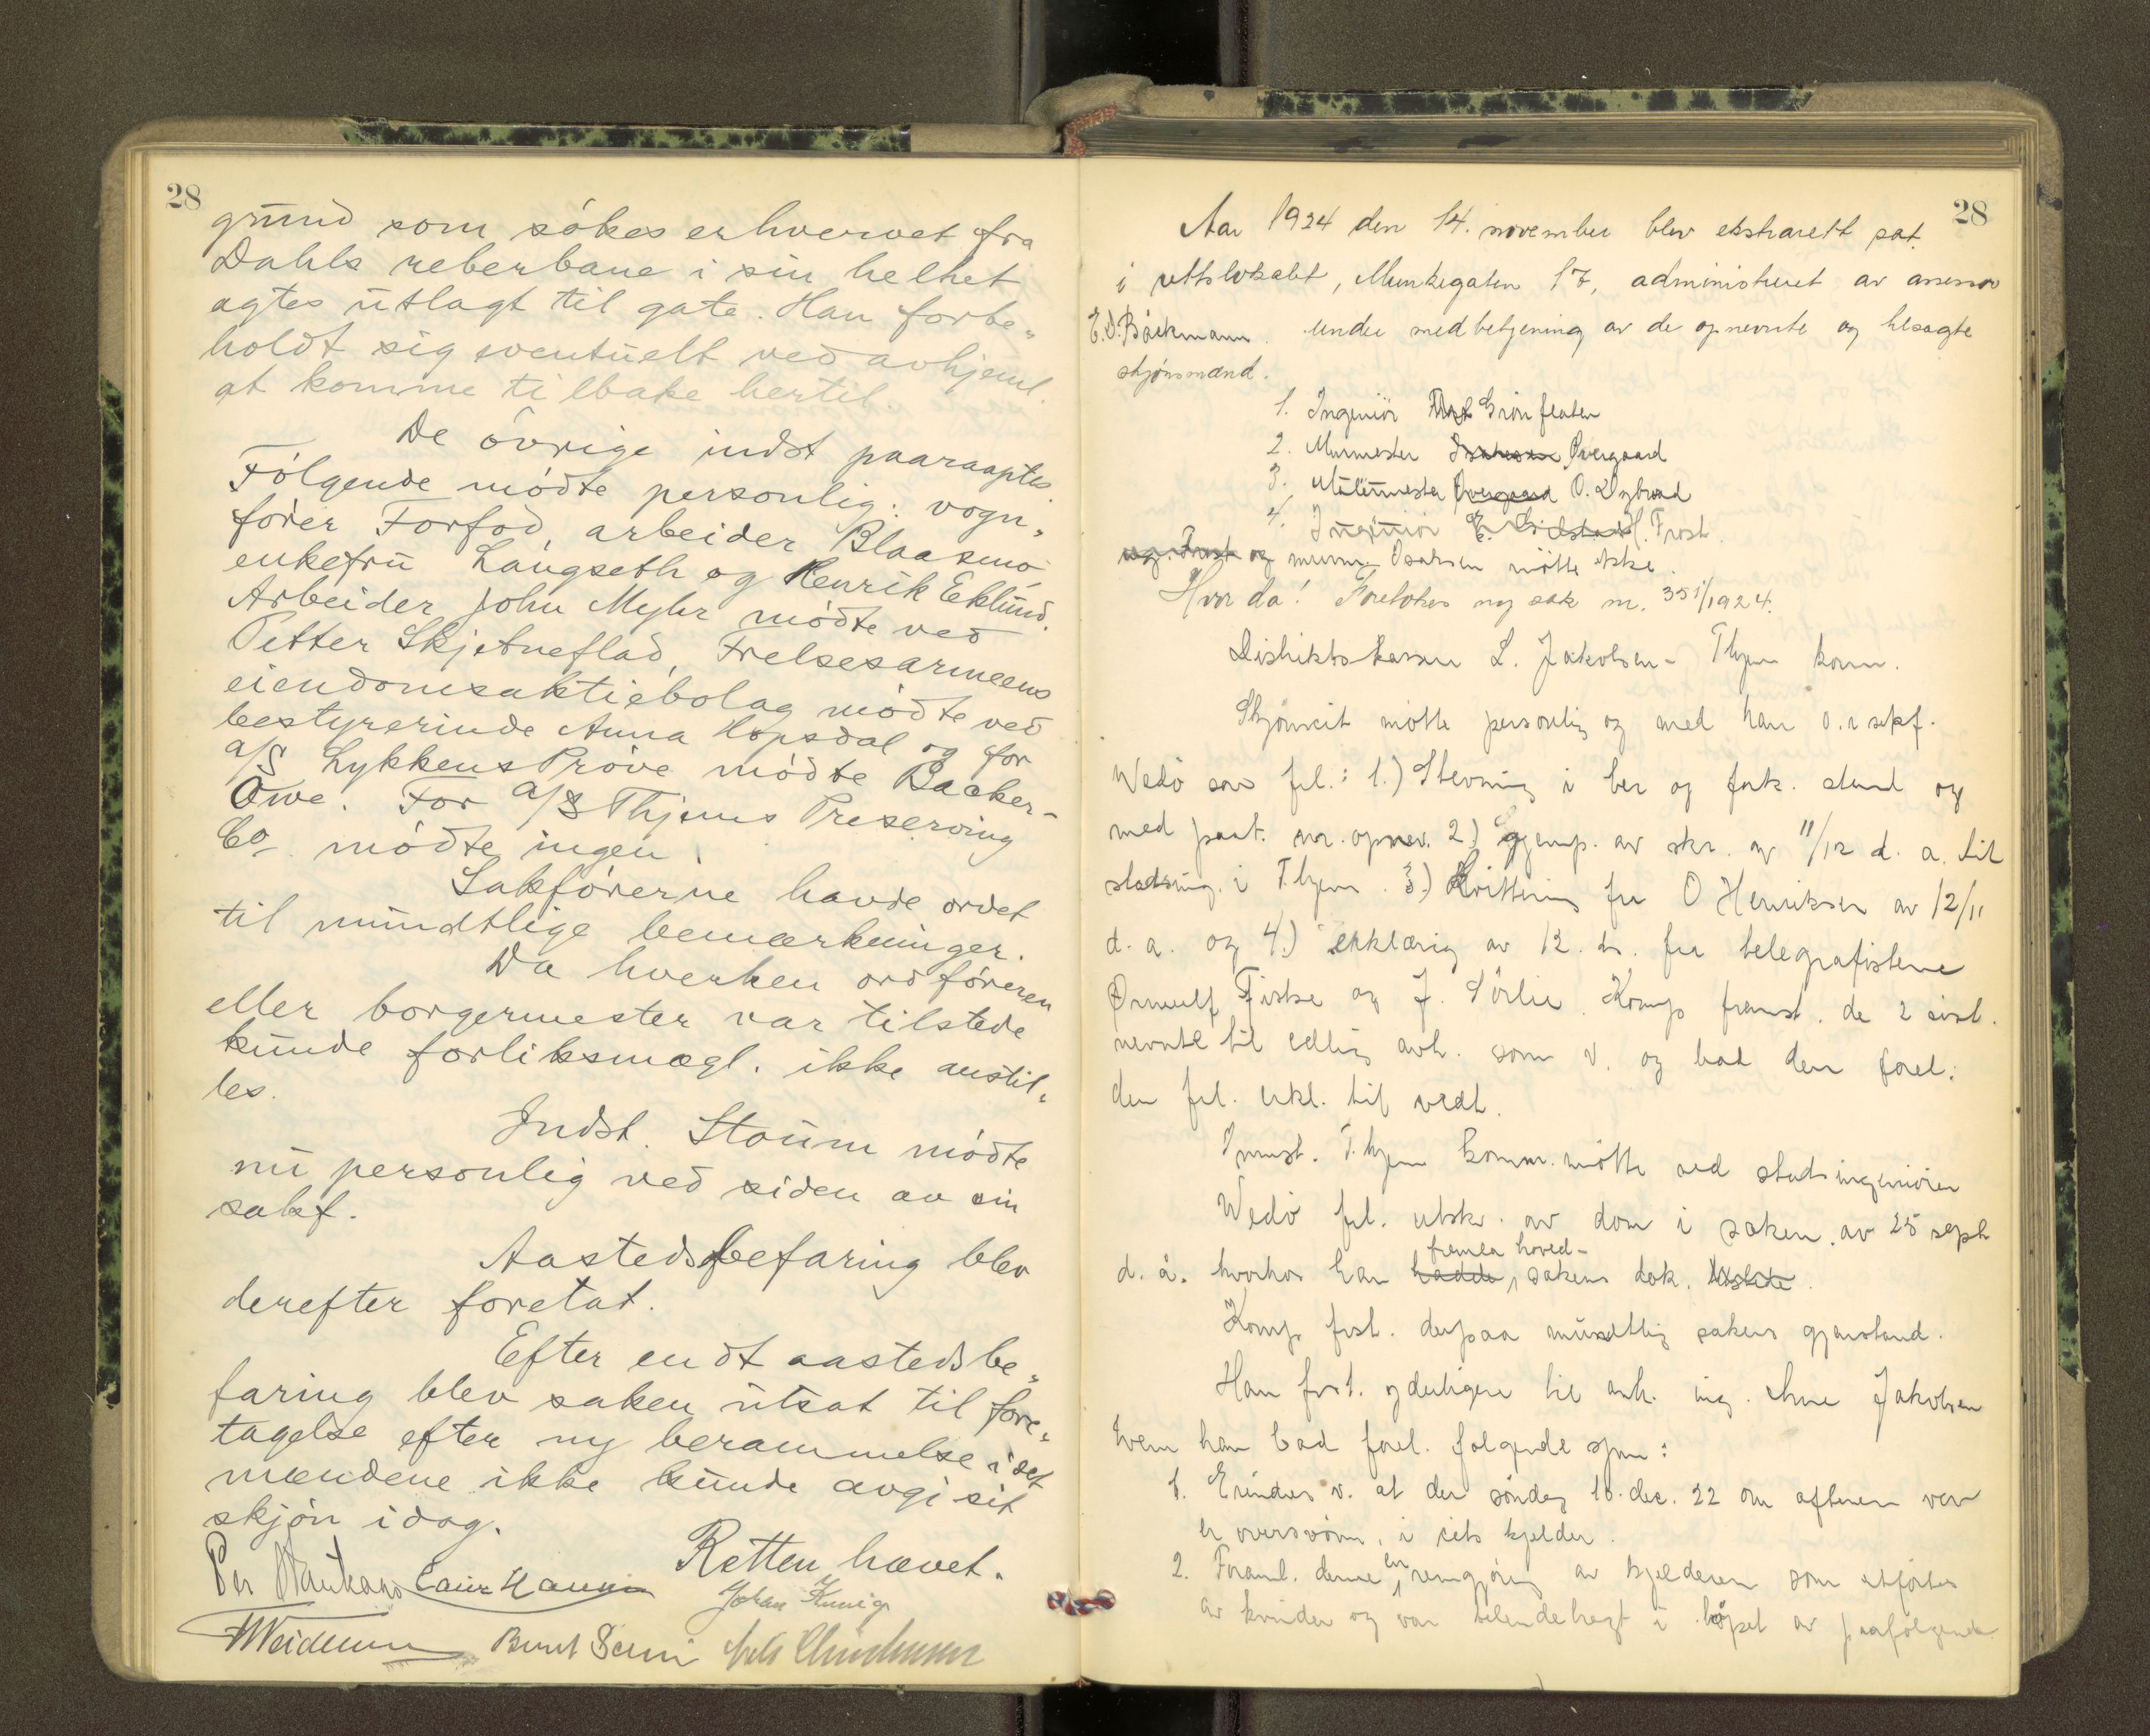 28
grund som søkes erhvervet fra
Dahls reberbane i sin helhet
agtes utlagt til gate. Han forbe„
holdt sig eventuelt ved avhjeml.
at komme tilbake hertil.
De øvrige indst paaraaptes.
Følgende mødte personlig: vogn„
fører Forfod, arbeider Blaasmo
enkefru Langseth og Henrik Eklund.
Arbeider John Myhr mødte ved
Petter Skjetneflad, Frelsesarmeens
eiendomsaktiebolag mødte ved
bestyrerinde Anna Hopsdal og for
a/S Lykkens Prøve mødte Backer-
Owe. For a/S Thjems Preserving
Co mødte ingen.
Sakførerne havde ordet
til mundtlige bemærkninger.
Da hverken ordføreren
eller borgermester var tilstede
kunde forliksmægl. ikke anstil„
les.
Indst. Stoum mødte
nu personlig ved siden av sin
sakf.
Aastedsbefaring blev
derefter foretat.
Efter endt aastedsbe„
faring blev saken utsat til fore„
tagelse efter ny berammelse idet
mændene ikke kunde avgi sit
skjøn idag.
Retten hævet.
Johan
Bernt
28
Aar 1924 den 14. november blev ekstrarett sat
i rettslokalet, Munkegaten 17, administreret av assessor
E.D. Bäckmann under medbetjening av de opnevnte og tilsagte
skjønsmænd.
1. Ingeniør Grønflaten
2. Murmester Isaksen Øvergaard
3. Malermester Øvergaard O. Dybvad
4. Ingeniør H. Frost.
ing. Frost og murm. Isaksen møtte ikke.
Hvor da! Foretokes ny sak nr. 351/1924.
Distriktskasser L. Jakobsen - Thjem komm.
Skjønscit møtte personlig og med ham o.r.sakf.
Wedø som frl.: 1.) Stevning i ber og fork. stand og
med paat. om opnev. 2.) Gjenp. av skr. av 11/12 d. a. til
stadsing. i T.hjem. 3.) Kvittering fra O Henriksen av 12/11
d. a. og 4.) erklæring av 12. ds. fra telegrafistene
Ørnulf Fiske og J. Sørlie. Komp fremst. de 2 sist.
nevnte til edlig avh. som v. og bad dem forel.
den frl. erkl. til vedt.
Innst. T.hjem komm. møtte ved stadsingeniøren
Wedø frl. utskr. av dom i saken av 25 sept
fremla hoved-
d. å. hvorhos han hadde, sakens dok.
Komp frst. derpaa mundtlig sakens gjenstand.
Han frst. yderligere til avh. ing. Jakobsen
hvem han bad forel. følgende spm:
1. Erindres v. at der søndag 10. dec. 22 om aftenen var
en oversvøm. i cits kjelder.
2. Foranl. denne en rengjøring av kjelderen som utførtes
av kvinder og var tilendebragt i løpet av paafølgende